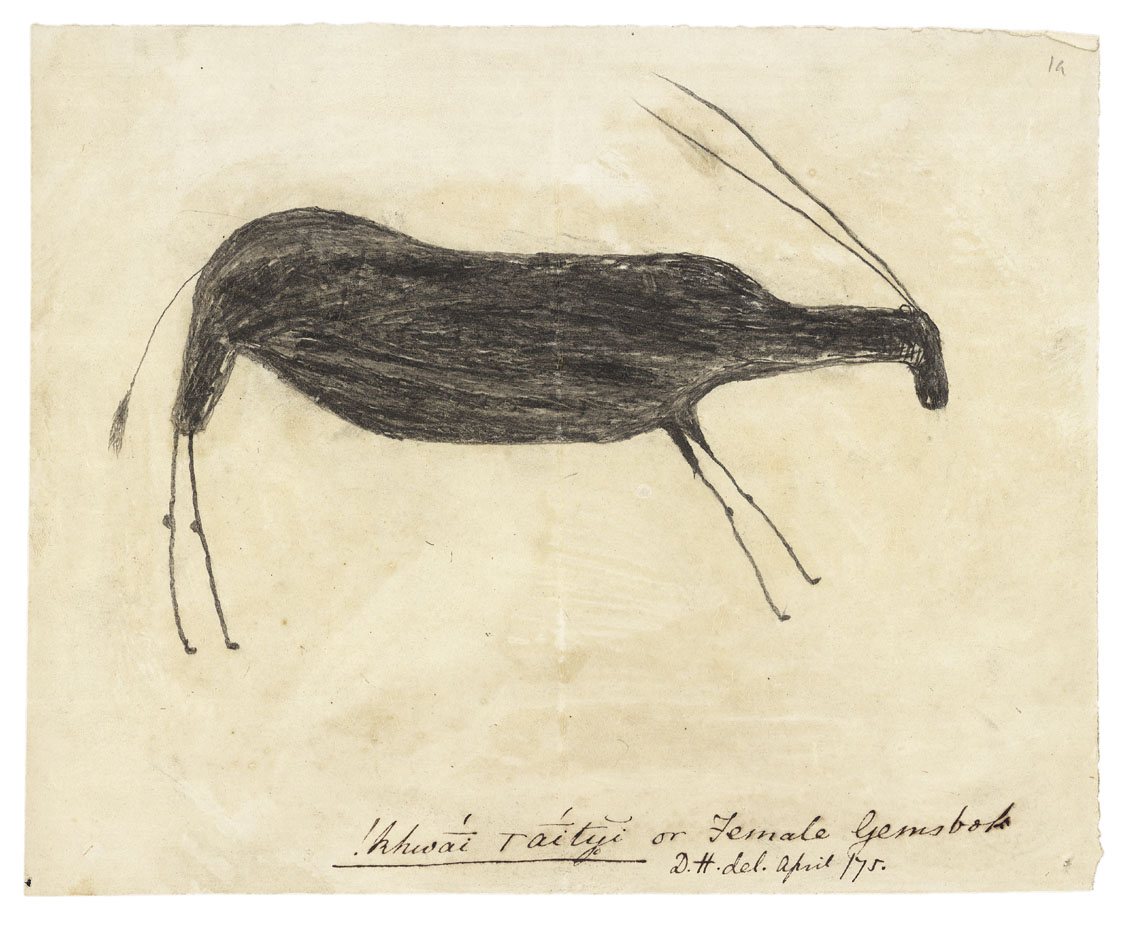 1a
!khwā́i Tā́ityi or Female Gemsbok
D.H. del. April /75.